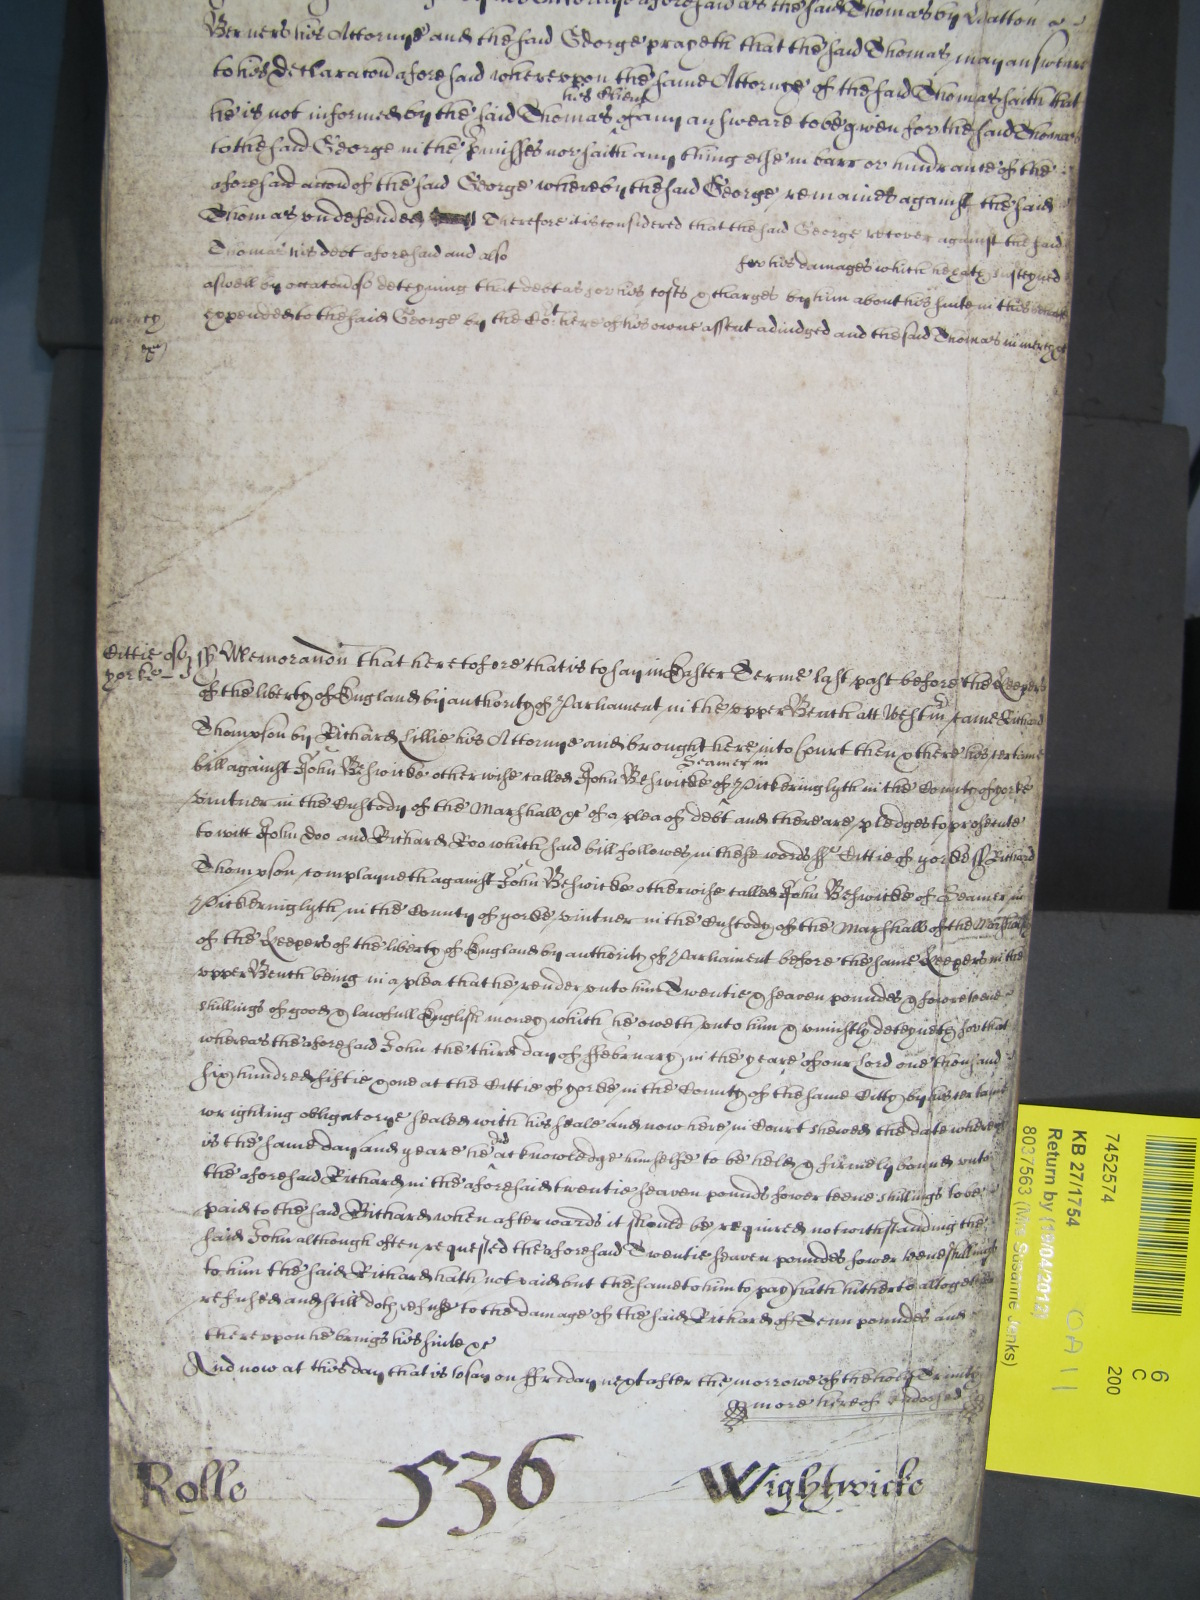 Attornye aforesaid as the said Thomas by Watton
Berners his Attornye and the said George prayeth that the said Thomas may answeare
to his declaracon aforesaid whereupon the same Attornye of the said Thomas saith that
his Client
he is not informed by the said Thomas of any answeare to be given for the said Thomas
to the said George in the pmisses nor saith any thing else in barr or hindrance of the
aforesaid accon of the said George whereby the said George remaines against the said
Thomas undefended Therefore it is considered that the said George recover against the said
Thomas his debt aforesaid and also for his damages which he hath susteyned
aswell by occacon of deteyning that debt as for his costs & charges by him about his suite in this behalf
expended to the said George by the Cort here of his owne assent adiudged and the said Thomas in mercy &c
mercy
Cittie of
yorke
ss Memorandon that heretofore that is to say in Easter Terme last past before the Keepers
of the liberty of England by authority of Parliament in the upper Bench att Westm came Richard
Thompson by Richard Lillie his Attornye and brought here into Court then & there his certaine
Seamer in
bill against John Beswicke otherwise called John Beswicke of Pickeringlyth in the County of yorke
vintner in the Custody of the Marshall &c of a plea of debt and there are pledges to prosecute
to witt John Doo and Richard Roo which said bill followes in these words ss Cittie of yorke ss Richard
Thompson complayneth against John Beswicke otherwise called John Beswicke of Seamer in
Pickeringlyth in the County of yorke vintner in the Custody of the Marshall of the Marshalsey
of the Keepers of the liberty of England by authority of Parliament before the same Keepers in the
upper Bench being in a plea that he render unto him Twentie & seaven poundes & fowreteene
shillings of good & lawfull English money which he oweth unto him & uniustly deteyneth for that
whereas the aforesaid John the third day of ffebruary in the yeare of our Lord one thousand
six hundred fiftie & one at the Cittie of yorke in the County of the same Citty by his certaine
wrighting obligatorye sealed with his seale and now here in Court shewed the date whereof
is the same day and yeare he did acknowledge himselfe to be held & firmely bound unto
the aforesaid Richard in the aforesaid twentie seaven pounds fower teene shillings to be
paid to the said Richard when afterwards it should be required notwithstanding the
said John although often requested the aforesaid Twentie seaven poundes fower teene shillings
to him the said Richard hath not paid but the same to him to pay hath hitherto altogether
refused and still doth refuse to the damage of the said Richard of Tenn poundes and
thereupon he brings his suite &c
And now at this day that is to say on ffryday next after the morrowe of the holy Trinity
more hereof indorsed
Rollo 536 Wightwicke
7452574
KB 27/1754
Return by (19/04/2012)
8037563 (Mrs Susanne Jenks)
OA 11
6
C
200